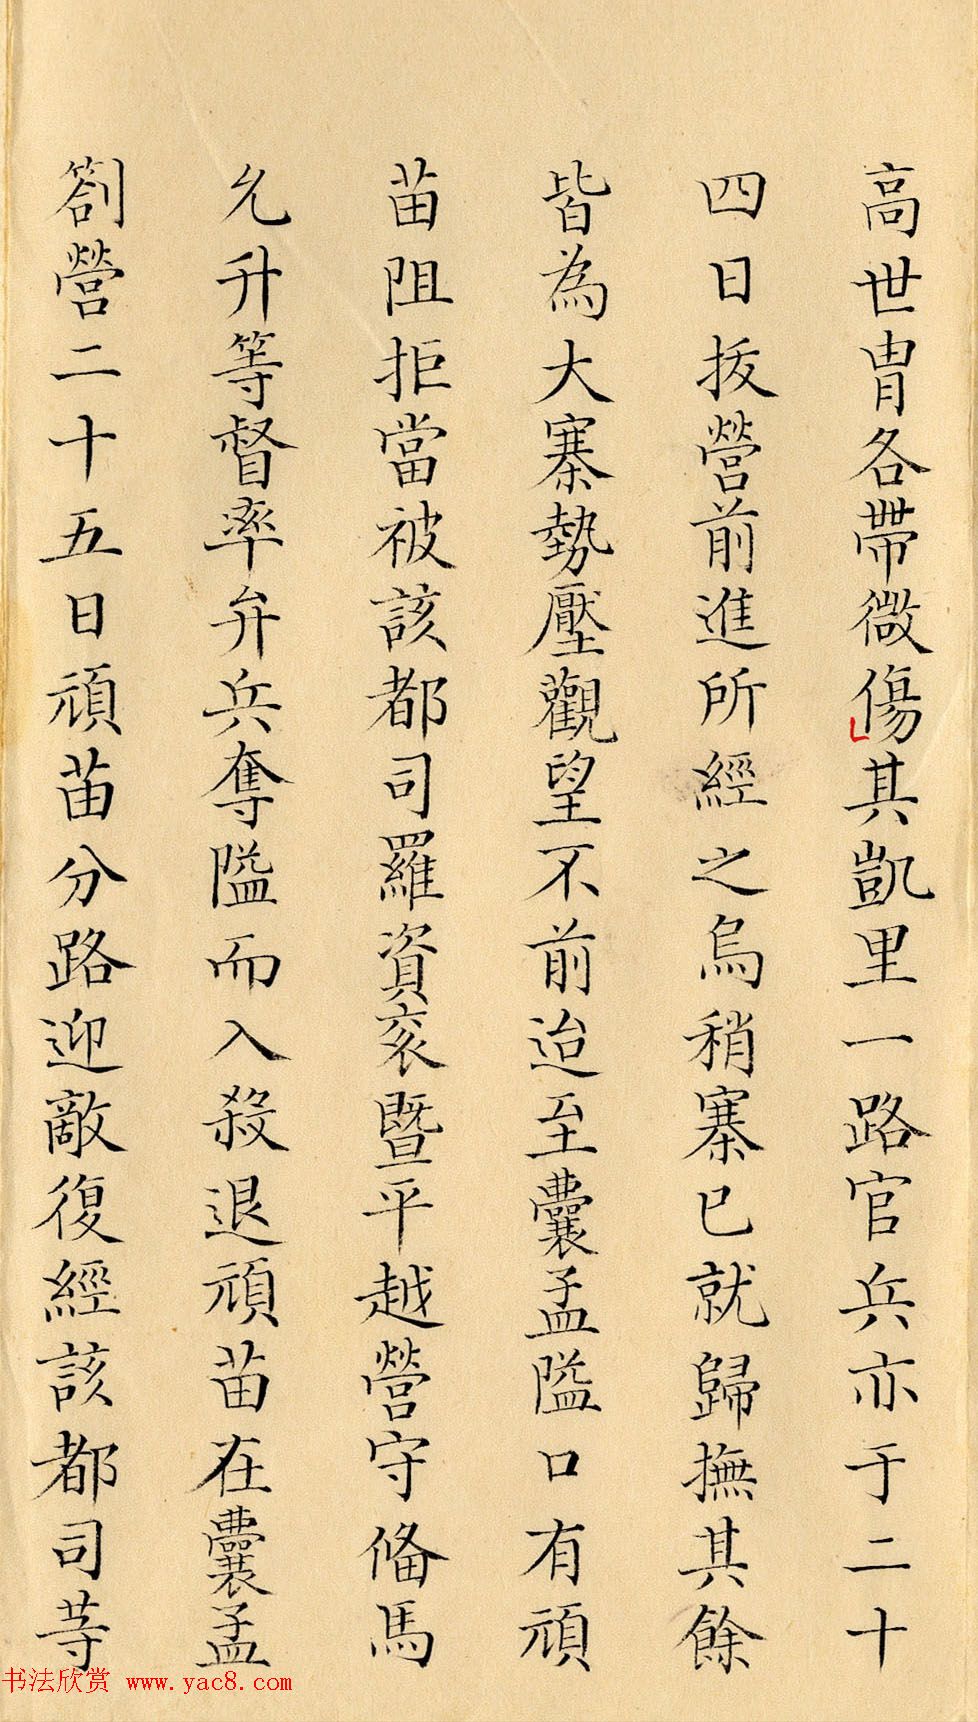 高世胄各帶微傷其凱里一路官兵亦于二十
四日拔營前進所經之烏稍寨已就歸撫其餘
皆為大寨勢壓觀望不前迨至囊孟隘口有頑
苗阻拒當被該都司羅資衮暨平越營守俻馬
允升等督率弁兵奪隘而入殺退頑苗在囊孟
劄營二十五日頑苗分路迎敵復經該都司䓁
书法欣赏 www.yac8.com